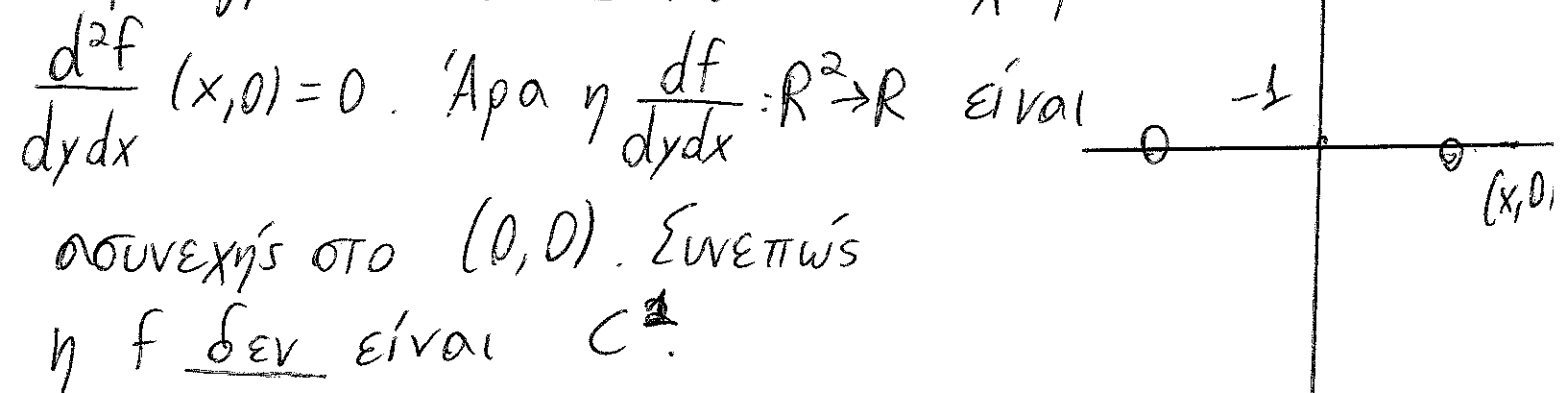 d²f/dydx (x,0) = 0. Άρα η df/dydx : R² → R είναι
ασυνεχής στο (0,0). Συνεπώς
η f δεν είναι C¹.
-1
0
(x,0